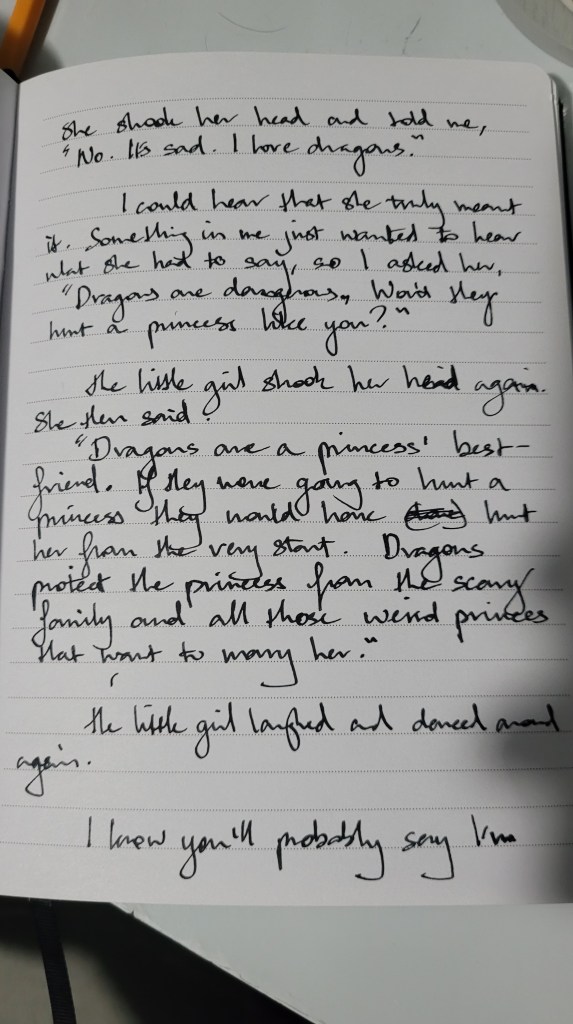 She shook her head and told me,
"No. It's sad. I love dragons."
I could hear that she truly meant
it. Something in me just wanted to hear
what she had to say, so I asked her,
"Dragons are dangerous, Won't they
hurt a princess like you?"
The little girl shook her head again.
She then said:
"Dragons are a princess' best-
friend. If they were going to hurt a
princess they would have hurt
her from the very start. Dragons
protect the princess from the scary
family and all those weird princes
that want to marry her."
The little girl laughed and danced around
again.
I know you'll probably say I'm